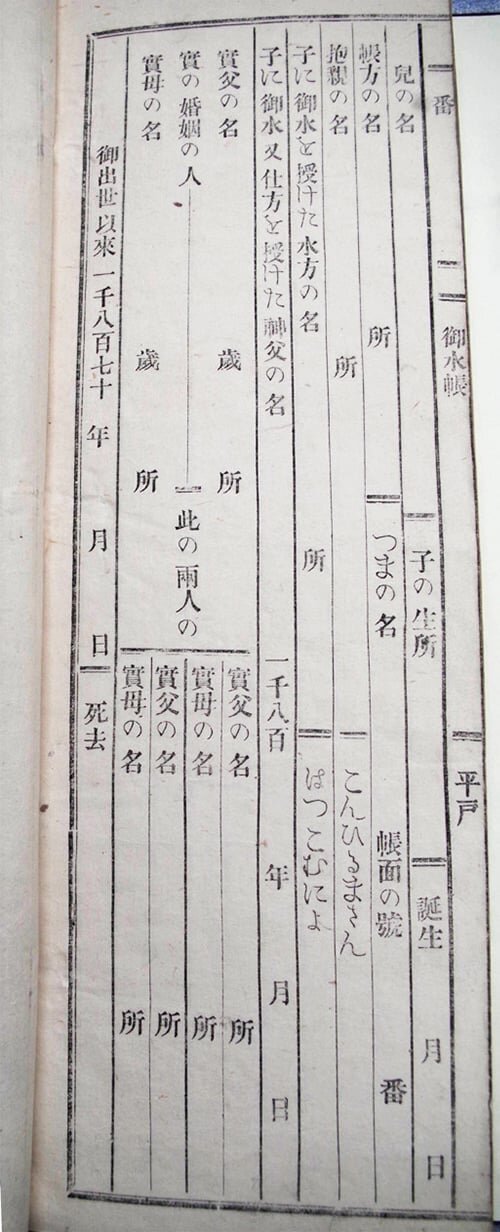 一番 御水帳 平戸
兒の名 子の生所 誕生 月 日
帳方の名 所 つまの名 帳面の號 番
抱親の名 所 こんひるまさん
子に御水を授けた水方の名 所 ぱつこむによ
子に御水又仕方を授けた神父の名 一千八百 年 月 日
實父の名 歲 所 實父の名 所
實の婚姻の人 此の兩人の 實母の名 所
實父の名 所
實母の名 歲 所 實母の名 所
御出世以來一千八百七十 年 月 日 死去